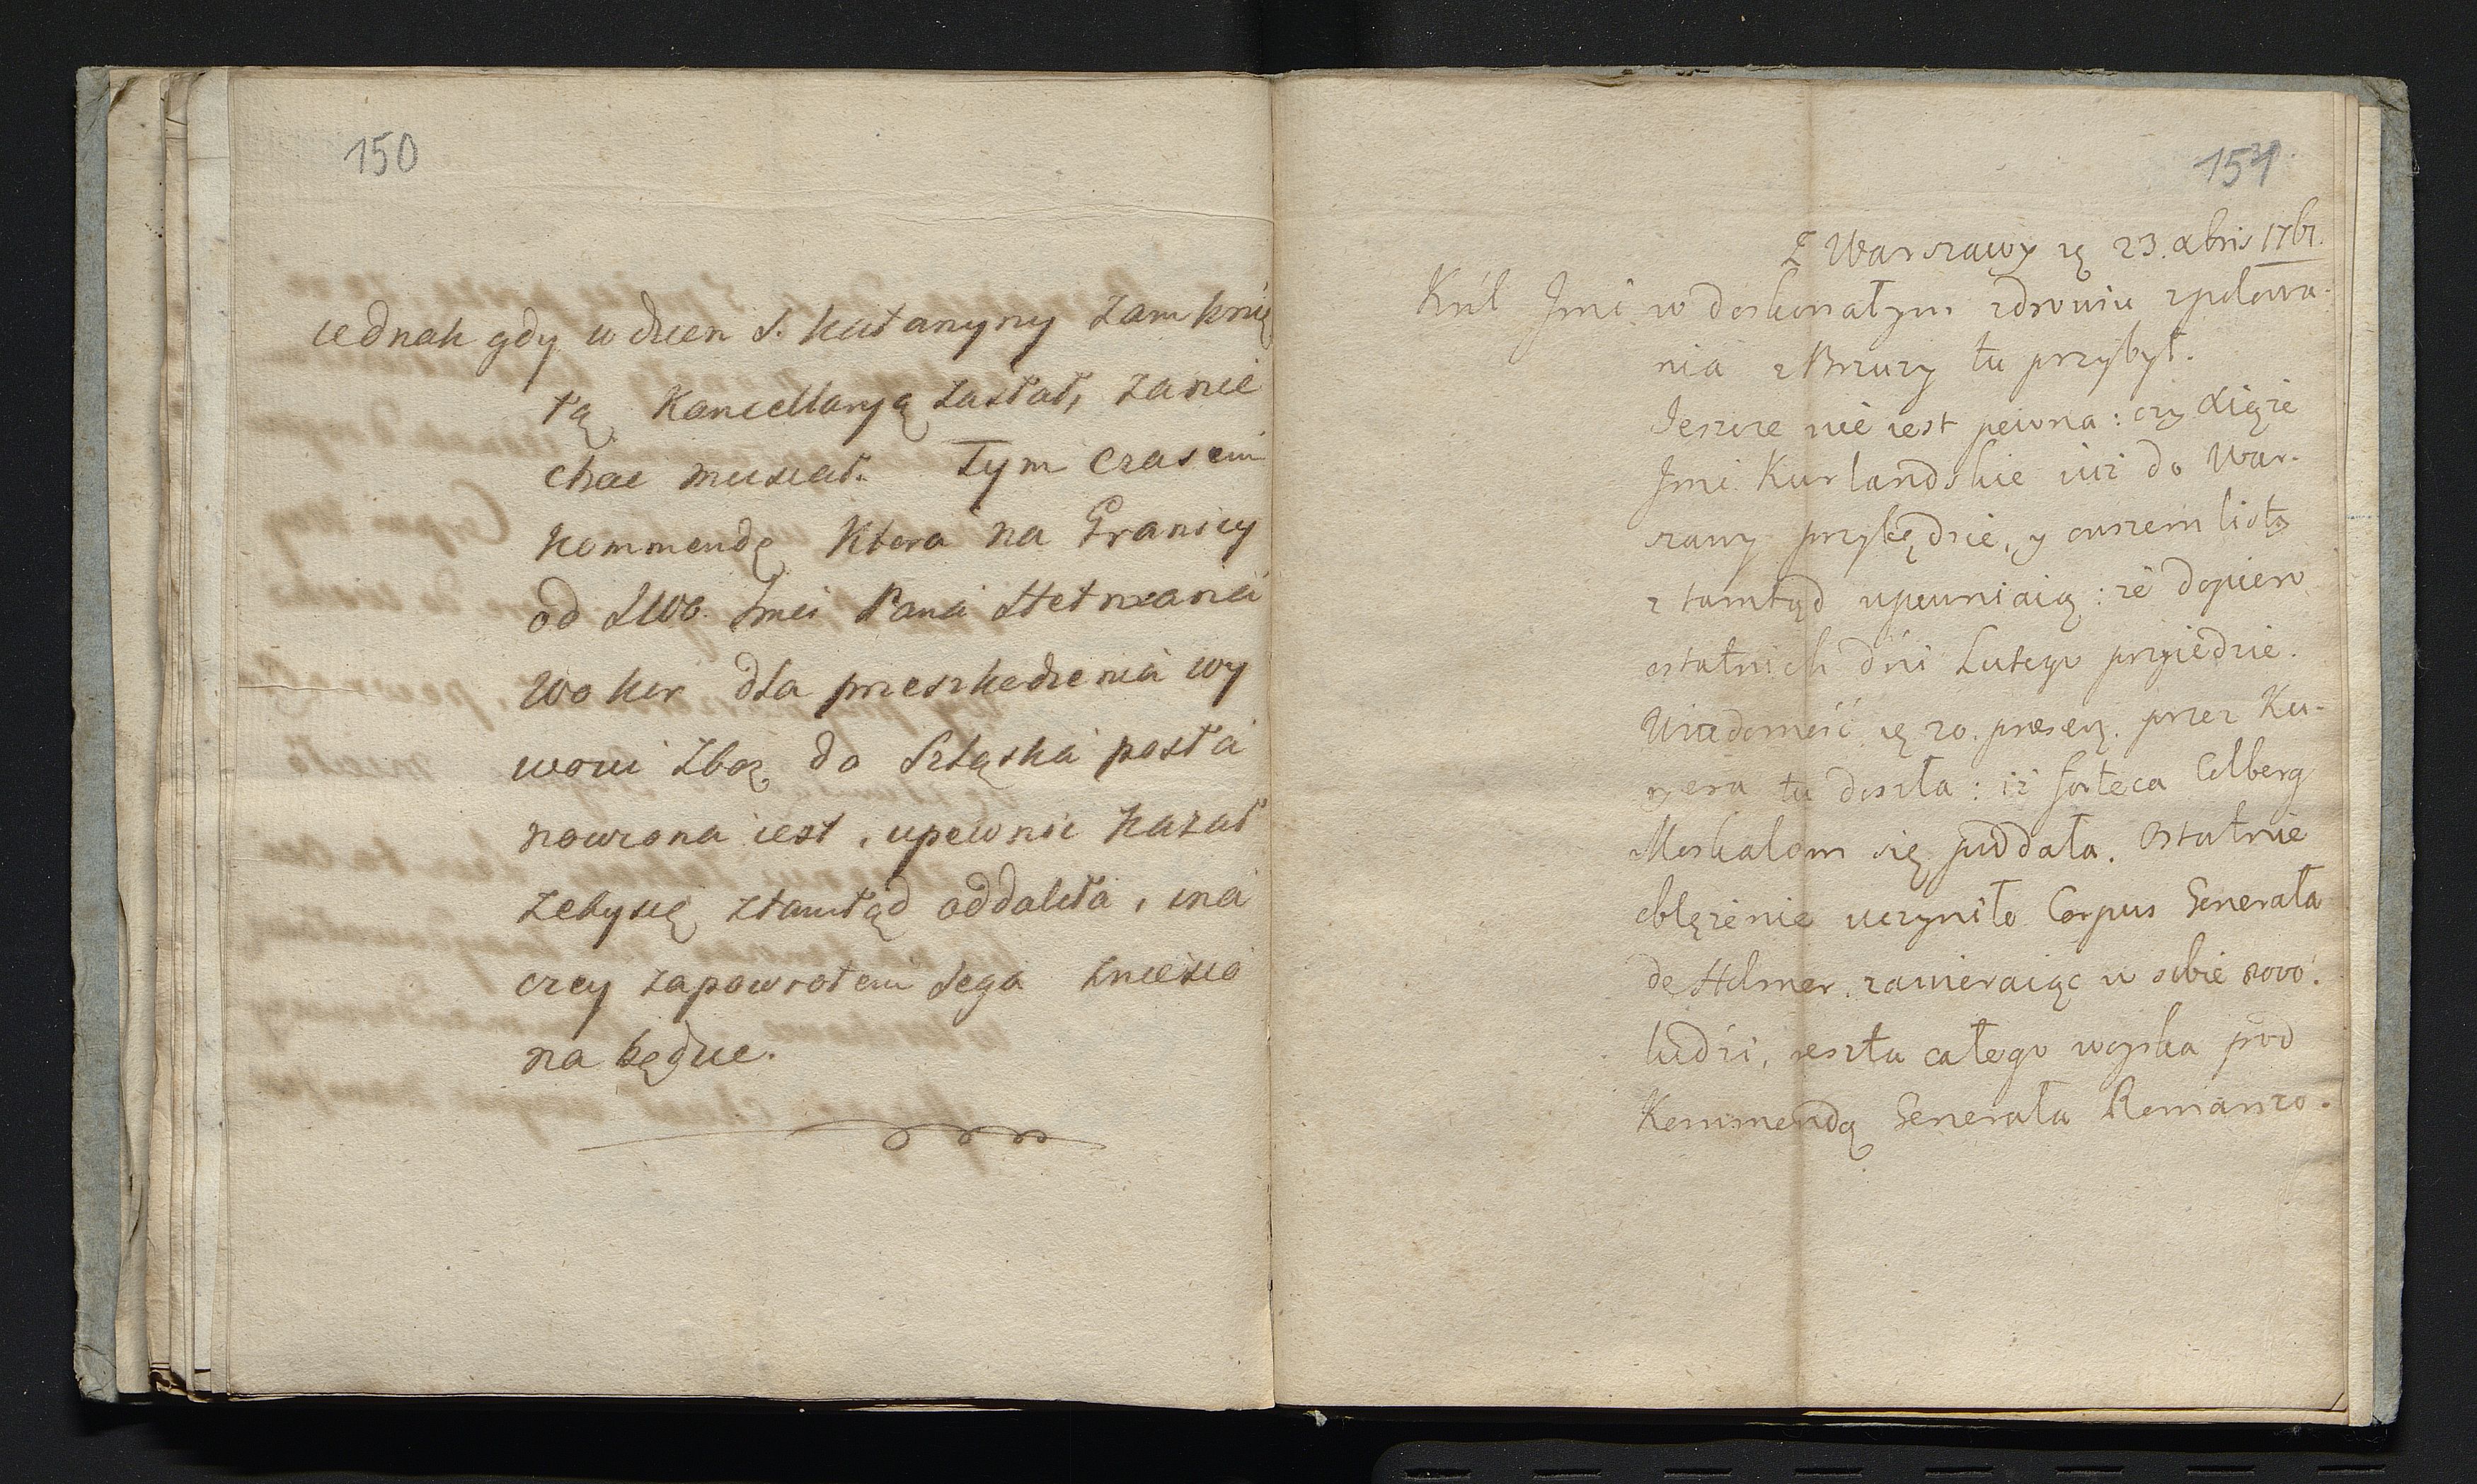 150
iednak gdy w dzien S. Katarzyny zamknię
tą Kancellaryą zastał, zanie
chac musiał. Tym czasem
kommendę ktora na Granicy
od LWo. Jmci Pana Hetmana
Wo Kor dla przeszkodzenia wy
wozu zboż do Szląska posta
nowiona iest, upewnic kazał
żeby się ztamtąd oddaliła, ina
czey zapowrotem Jego zniesio
na będzie.
151
Z Warszawy ię 23. Xbris 1761.
Król Jmć w doskonałym zdrowiu z polowa-
nia z Bruzy tu przybył.
Ieszcze nie iest pewna: czy Xiąże
Jmć Kurlandskie iuż do War-
szawy przybędzie, y owszem listy
z tamtąd upewniaią: że dopiero
ostatnich dni Lutego przyiedzie.
Wiadomość ię 20. praesen. przez Ku-
ryera tu doszła: iż forteca Colberg
Moskalom się poddała. Ostatnie
oblężenie uczyniło Corpus Generała
de Holmer, zawieraiąc w sobie
ludzi, reszta całego woyska pod
Kommendą Generała Romanzo-